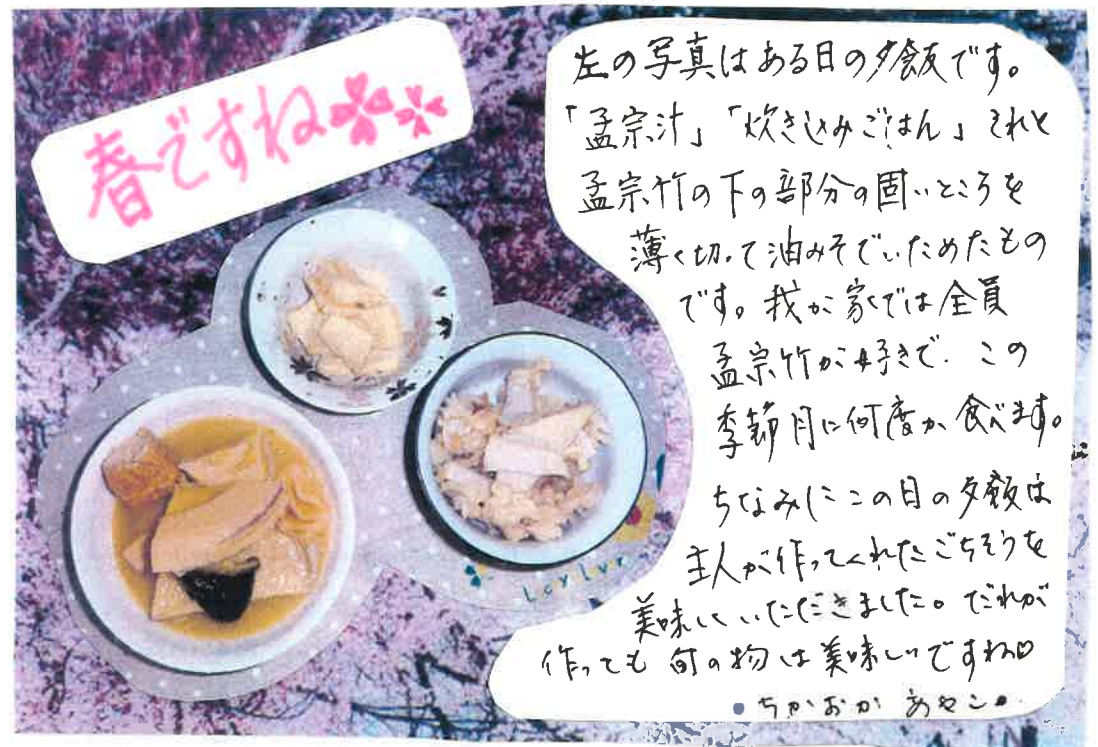 春ですね
左の写真はある日の夕飯です。
「孟宗汁」「炊き込みごはん」それと
孟宗竹の下の部分の固いところを
薄く切って油みそでいためたもの
です。我が家では全員
孟宗竹が好きで、この
季節月に何度か食べます。
ちなみにこの日の夕飯は
主人が作ってくれたごちそうを
美味しくいただきました。だれが
作っても旬の物は美味しいですね♡
ちかおか あやこ